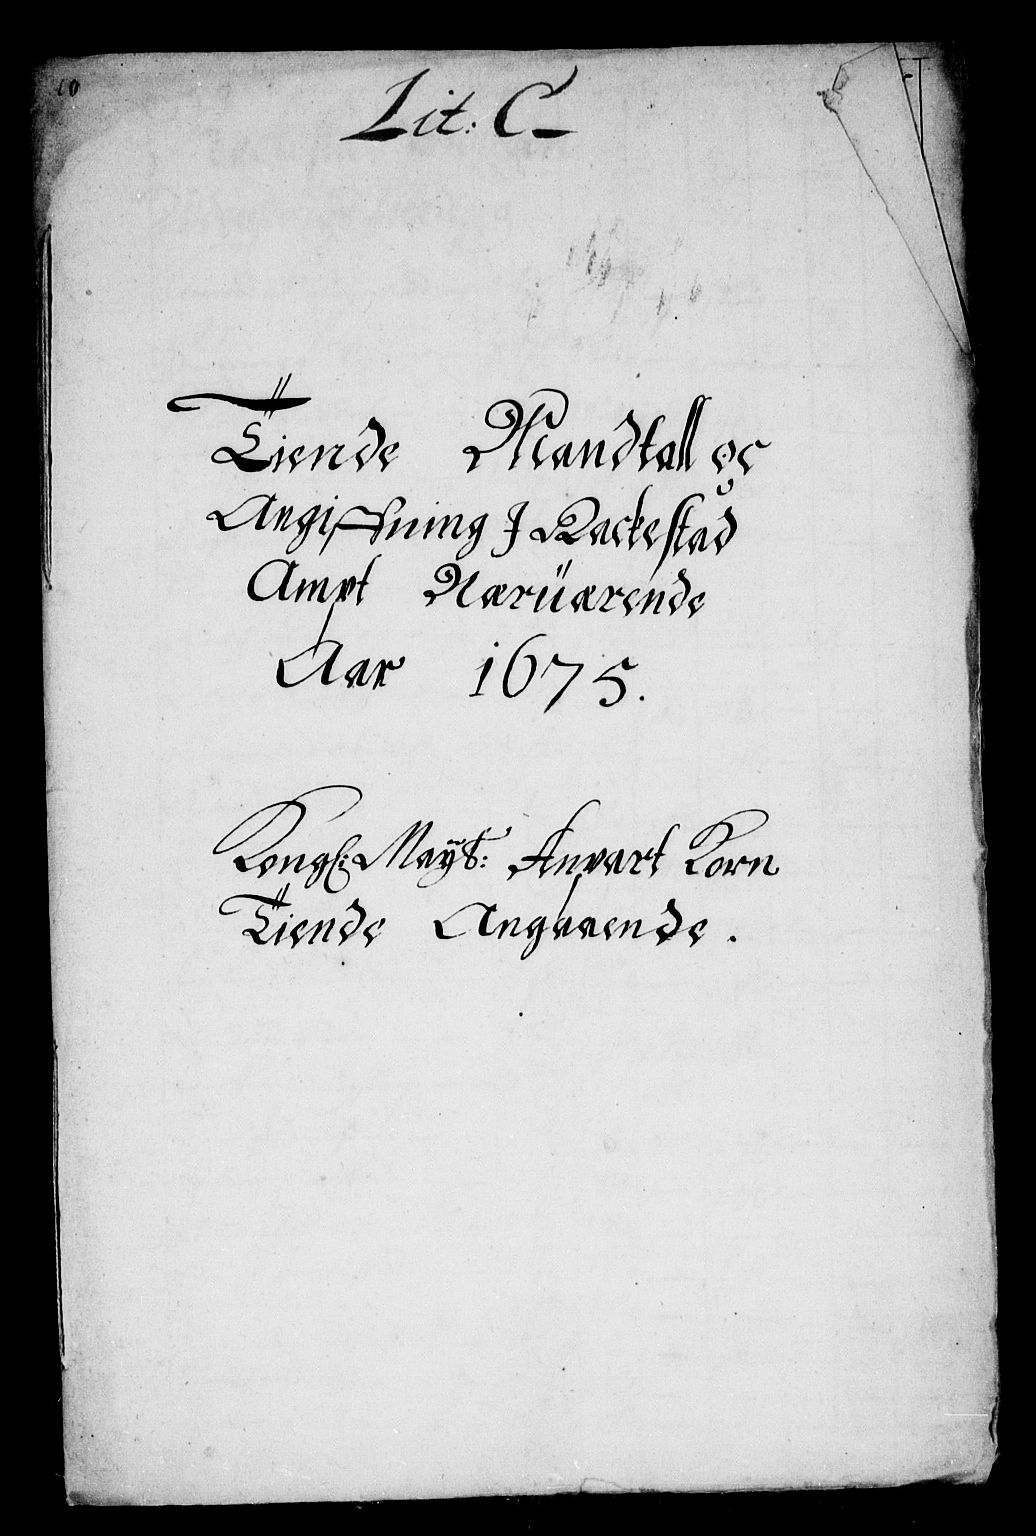 10
Lit: C
Tiende Mandtall og
Angifning J Rackestad
Ampt Nærüærende
Aar 1675.
Kongl: Mayst: Anpart Korn
Tiende Angaaende.